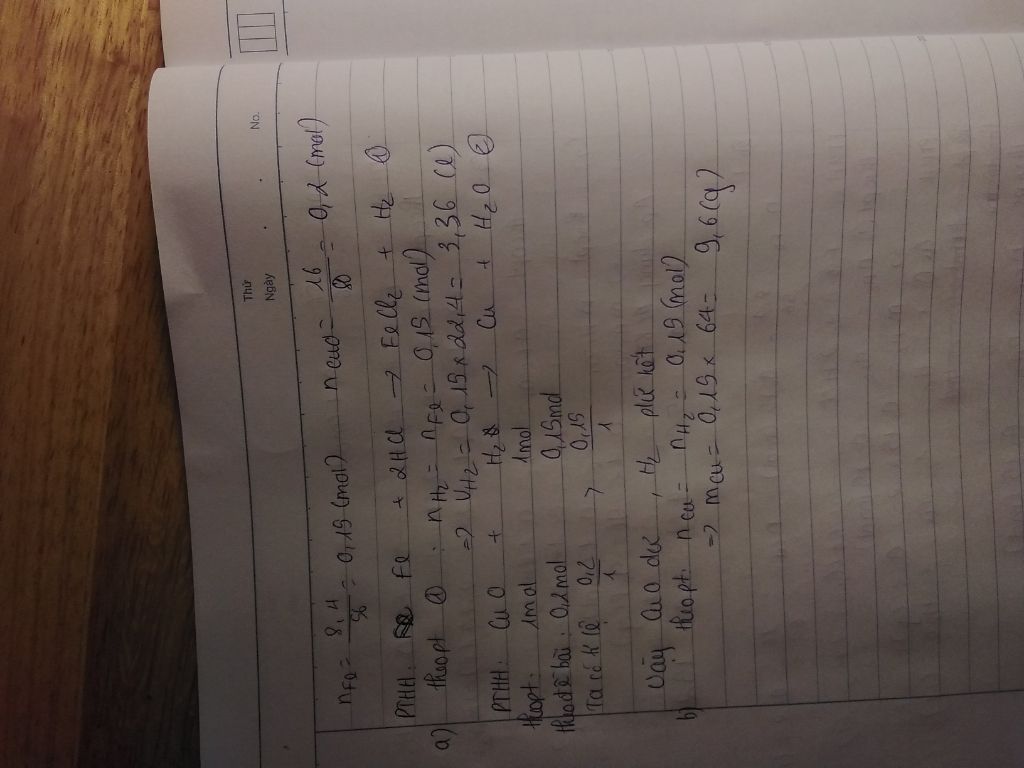 Thứ
Ngày
No.
nFe = 8,4/56 = 0,15 (mol) nCuO = 16/80 = 0,2 (mol)
PTHH: Fe + 2HCl → FeCl2 + H2 ①
a) theo pt ① : nH2 = nFe = 0,15 (mol)
=> VH2 = 0,15 x 22,4 = 3,36 (l)
PTHH: CuO + H2 → Cu + H2O ②
theo pt: 1mol 1mol
theo đề bài: 0,2mol 0,15mol
Ta có tỉ lệ 0,2/1 > 0,15/1
Vậy CuO dư, H2 pứ hết
b) theo pt: nCu = nH2 = 0,15 (mol)
=> mCu = 0,15 x 64 = 9,6 (g)